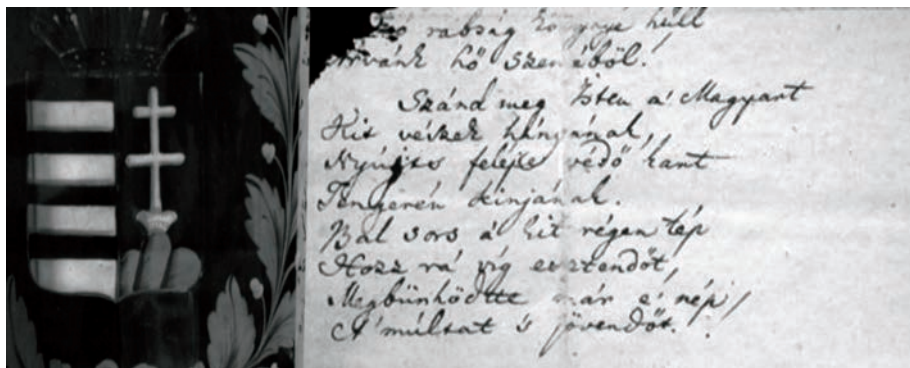 rabság könnye hull
Árvánk hő szeméből!
Szánd meg Isten a' Magyart
Kit vészek hányának,
Nyújts feléje védő kart
Tengerén kínjának.
Bal sors a' kit régen tép
Hozz rá víg esztendőt,
Megbünhödte már e' nép
A' múltat 's jövendőt!